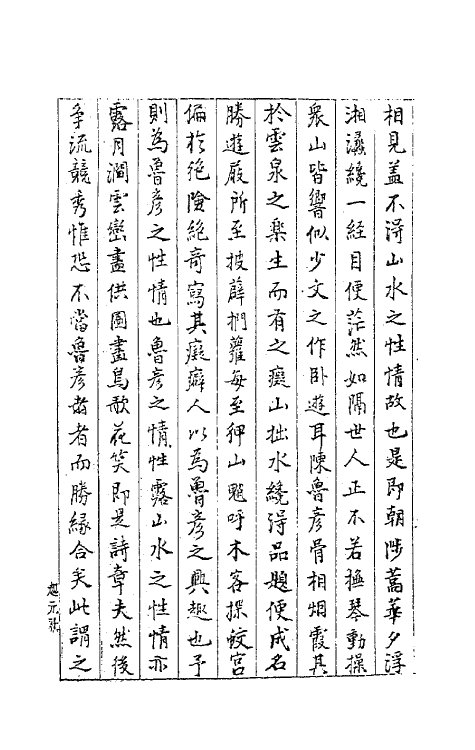 相見盖不淂山水之性情故也是即朝陟蒿華夕浮
湘灕纔一經目便茫然如隔世人正不若撫琴動操
衆山皆響似少文之作卧遊耳陳魯彦骨相烟霞其
於雲泉之樂生而有之癡山拙水纔淂品題便成名
勝遊屐所至披薜捫蘿每至狎山魈呼木客探蛟宫
偏於絶險絶竒寫其癡癖人以為魯彦之興趣也予
則為魯彦之性情也魯彦之情性露山水之性情亦
露月澗雲巒盡供圖畫鳥歌花笑即是詩章夫然後
争流競秀惟恐不當魯彦者而勝縁合矣此謂之
趙元